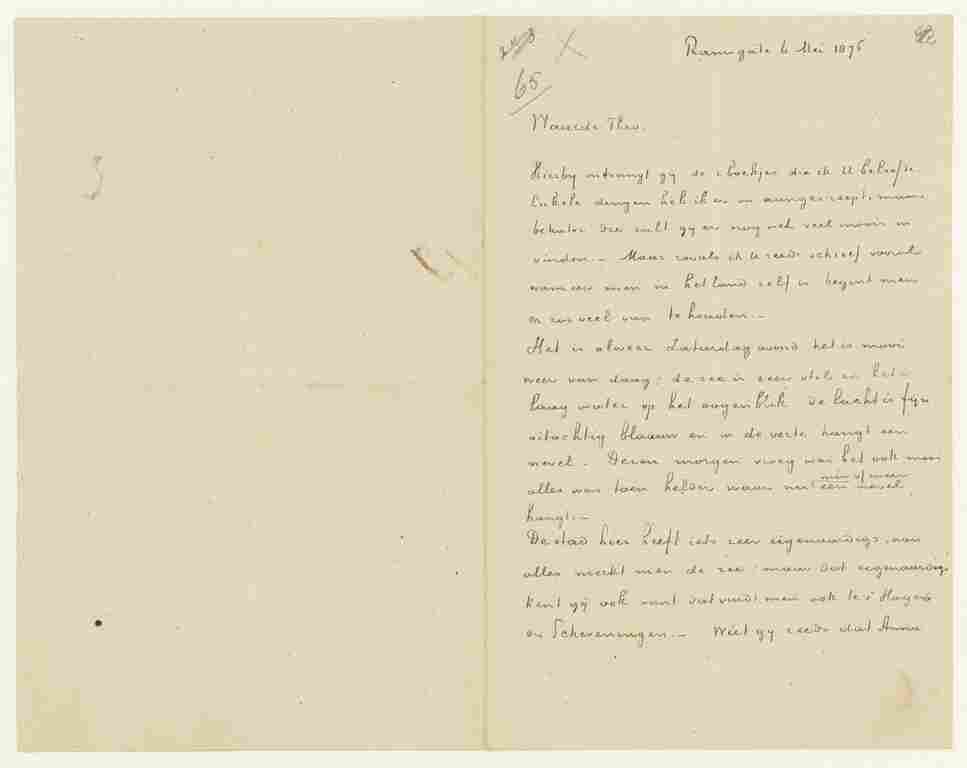 Ramsgate 6 Mei 1876
65
Waarde Theo.
Hierbij ontvangt gij de 2 boekjes die ik U beloofde.
Enkele dingen heb ik er in aangestreept, maar
behalve die zult gij er nog wel veel moois in
vinden. – Maar zooals ik U reeds schreef vooral
wanneer men in het land zelf is begint men
er zoo veel van te houden. –
Het is alweer Zaturdag avond het is mooi
weer van daag; de zee is zeer stil en het is
laag water op het oogenblik de lucht is fijn
witachtig blaauw en in de verte hangt een
nevel. Dezen morgen vroeg was het ook mooi
alles was toen helder waar nu min of meer een nevel
hangt. –
De stad hier heeft iets zeer eigenaardigs, aan
alles merkt men de zee; maar dat eigenaardige
kent gij ook want dat vindt men ook te 's Hage
en Scheveningen. – Weet gij reeds dat Anna